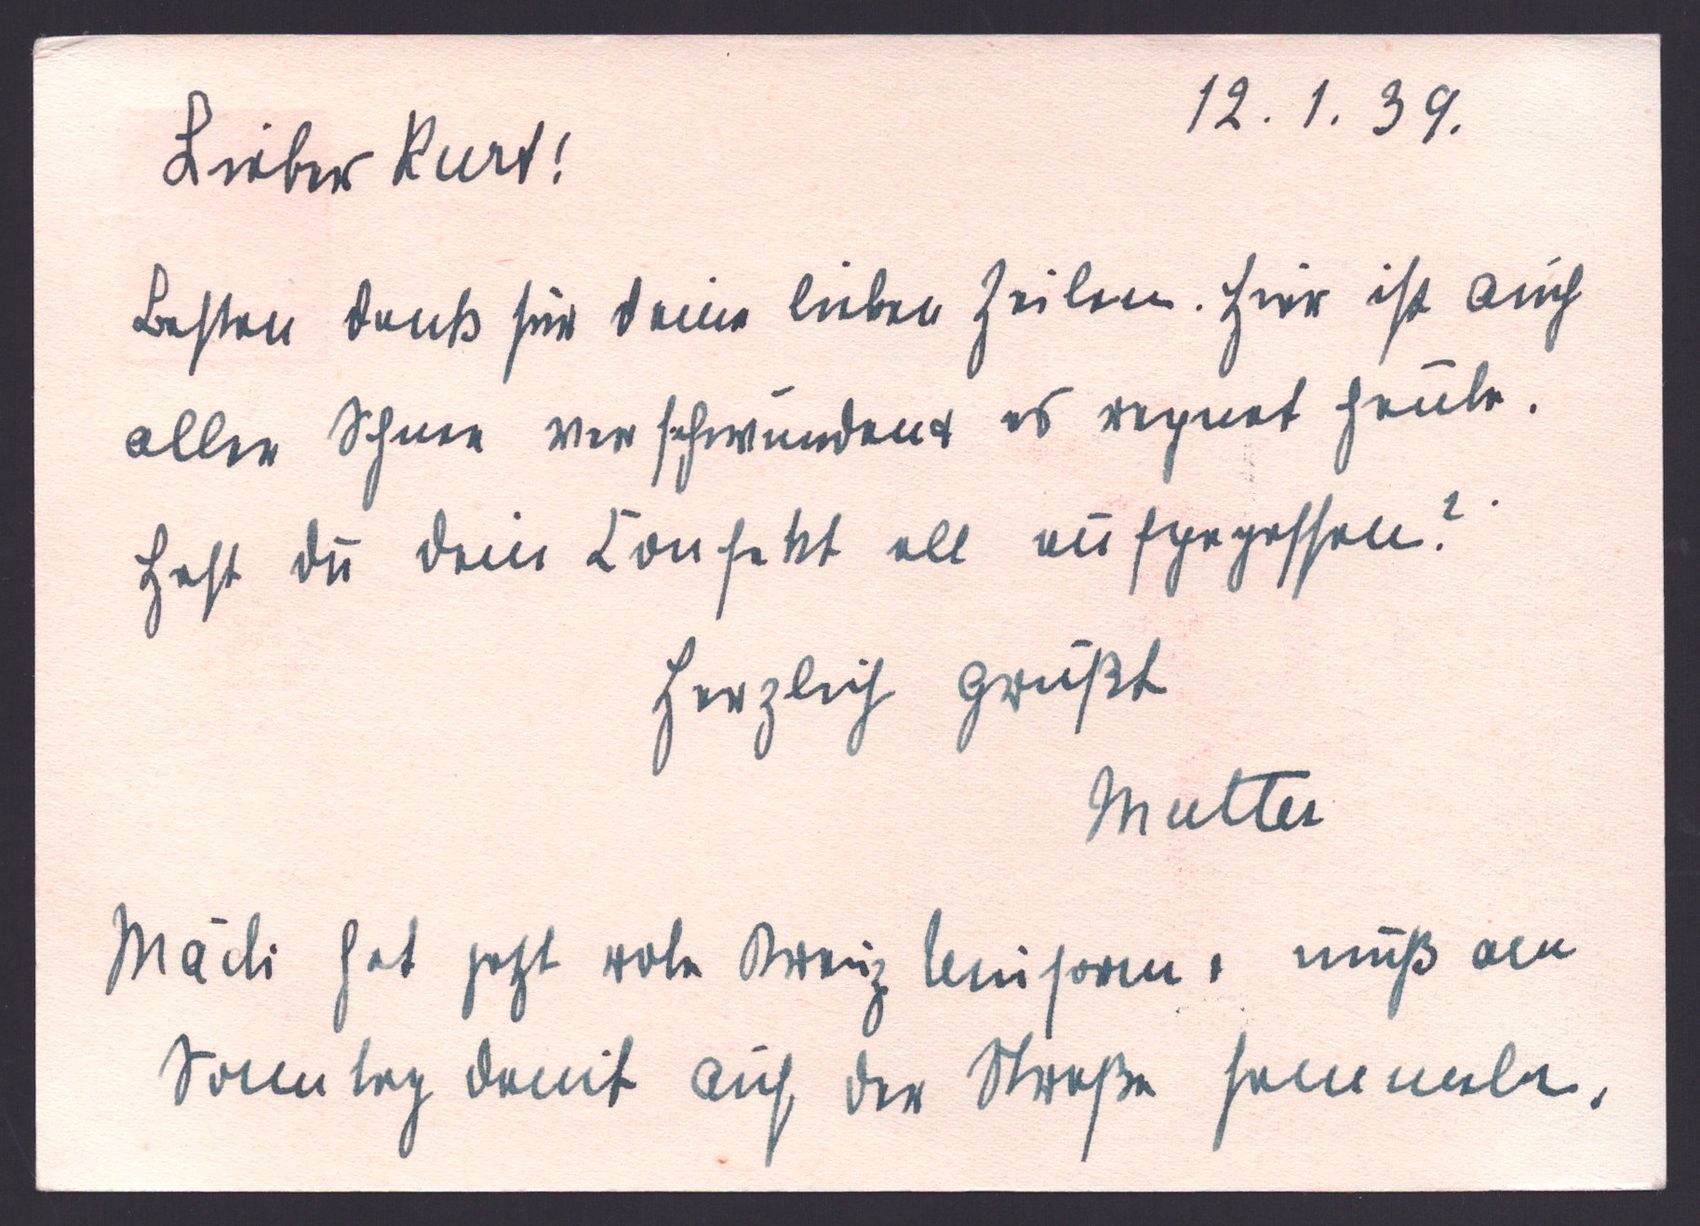 12. 1. 39.
Lieber Kurt!
Besten Dank für deine lieben Zeilen. Hier ist auch
aller Schnee verschwunden & es regnet heute.
Hast du dein Confekt all aufgegessen?
Herzlich grüßt
Mutter
Mädi hat jetzt rote Kreuz Uniform, muß am
Sonntag damit auf der Straße sammeln.